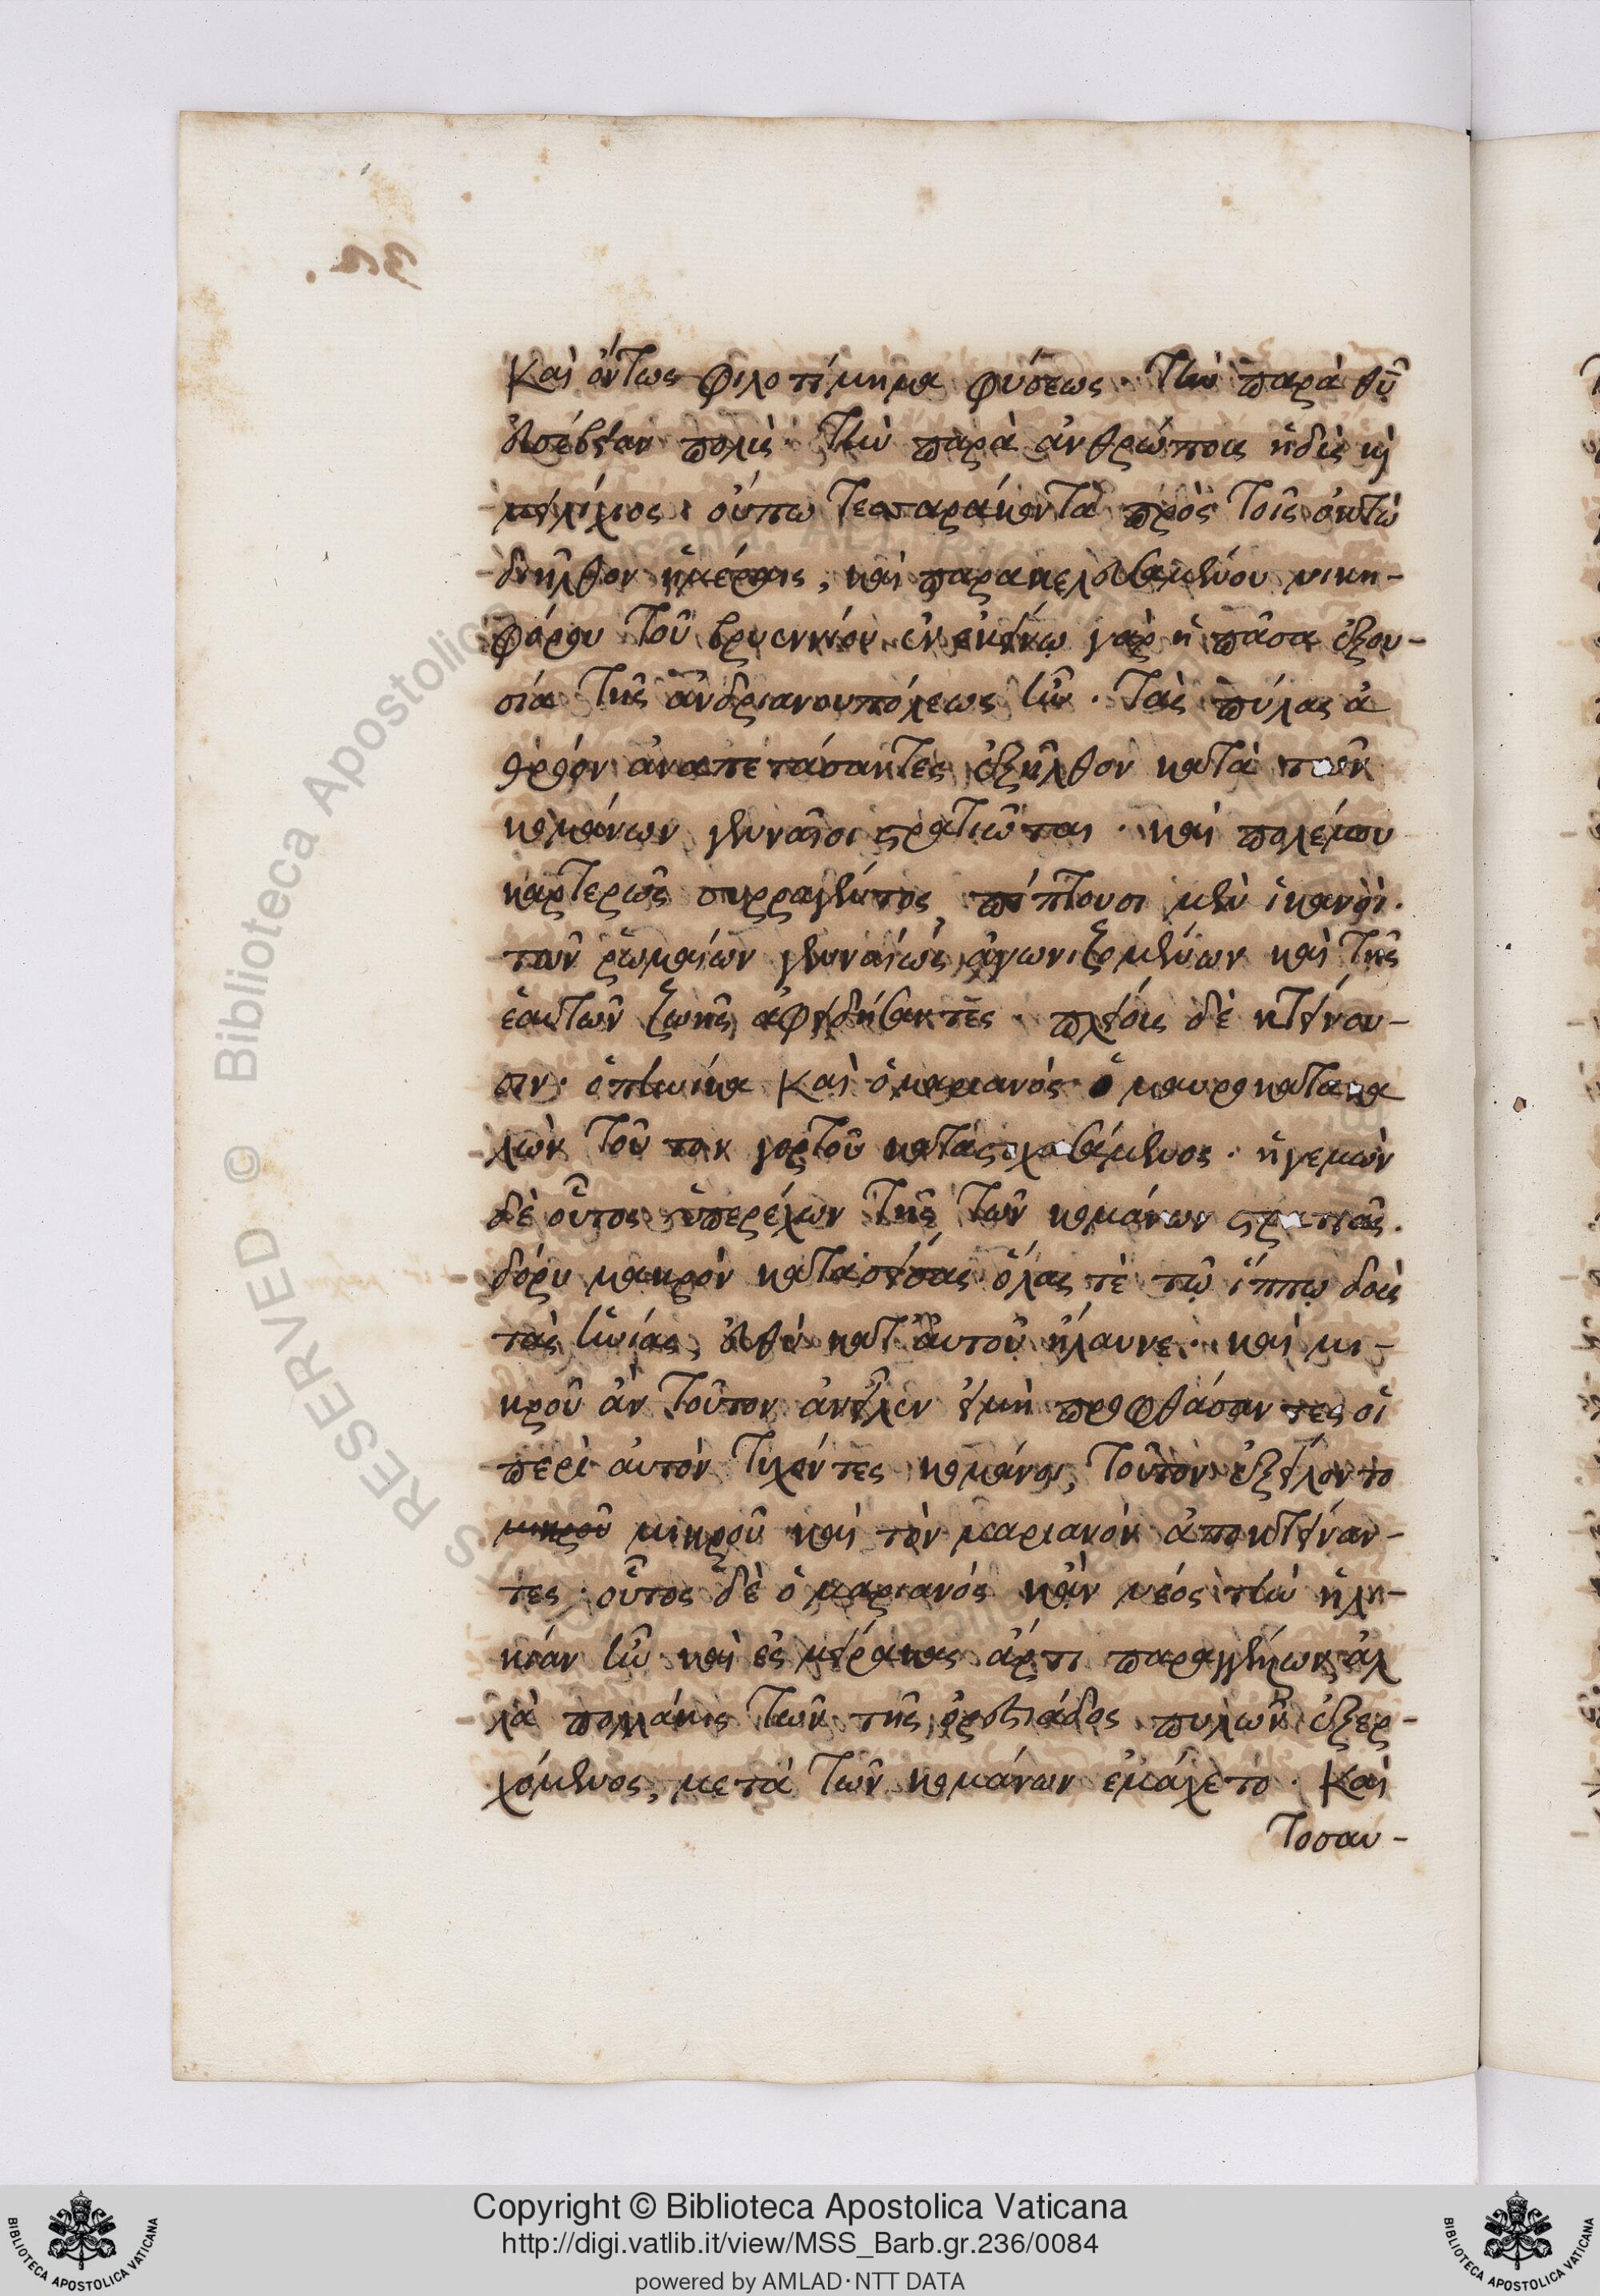 Καὶ ὄντως φιλοτίμημα φύσεως. τὴν παρὰ θῦ
εὐσέβειαν πολὺς. τὴν παρὰ ἀνθρώποις ἡδὺς κὶ
μειλίχιος. οὔπω τεσσαράκοντα πρὸς τοῖς ὀκτὼ
διῆλθον ἡμέραις, καὶ παρακελευσαμένου νικη-
φόρου τοῦ βρυεννίου ἐν ἐκείνω γὰρ ἡ πᾶσα ἐξου-
σία τῆς ἀνδριανουπόλεως ἦν. τὰς πύλας ἀ
θρόον ἀναπετάσαντες ἐξῆλθον κατὰ τῶν
κομάνων γενναῖοι στρατιῶται. καὶ πολέμου
καρτερῶς συρραγέντος πίπτουσι μὲν ἱκανοὶ.
τῶν ῥωμαίων γενναίως ἀγωνιζομένων καὶ τῆς
ἑαυτῶν ζωῆς ἀφειδήσαντες. πλείους δὲ κτείνου-
σιν. ὁπηνίκα Καὶ ὁ μαριανὸς ὁ μαυροκατακα
λὼν τοῦ τογορτοῦ καταστοχασάμενος. ἡγεμὼν
δὲ οὗτος ὑπερέχων τῆς τῶν κομάνων στρατιᾶς.
δόρυ μακρὸν κατασείσας ὅλας τὲ τῶ ἵππω δοὺς
τὰς ἡνίας, εὐθὺ κατ αὐτοῦ ἤλαυνε. καὶ μι-
κροῦ ἂν τοῦτον ἀνεῖλεν εἰμὴ προφθάσαντες οἱ
περὶ αὐτὸν τυχόντες κομάνοι, τοῦτον ἐξείλοντο
μικροῦ μικροῦ καὶ τὸν μαριανὸν ἀποκτείναν-
τες. οὗτος δὲ ὁ μαριανός κἂν νέος τὴν ἡλι-
κίαν ἦν καὶ ἐς μείρακας ἄρτι παραγγείλων ἀλ
λὰ πολλάκις τῶν τῆς ὀρεστιάδος πυλῶν ἐξερ-
χόμενος, μετὰ τῶν κομάνων ἐμάχετο. Καὶ
τοσαυ-
© Biblioteca Apostolica
RESERVED
Copyright © Biblioteca Apostolica Vaticana
http://digi.vatlib.it/view/MSS_Barb.gr.236/0084
powered by AMLAD·NTT DATA
BIBLIOTECA APOSTOLICA VATICANA
BIBLIOTECA APOSTOLICA VATICANA